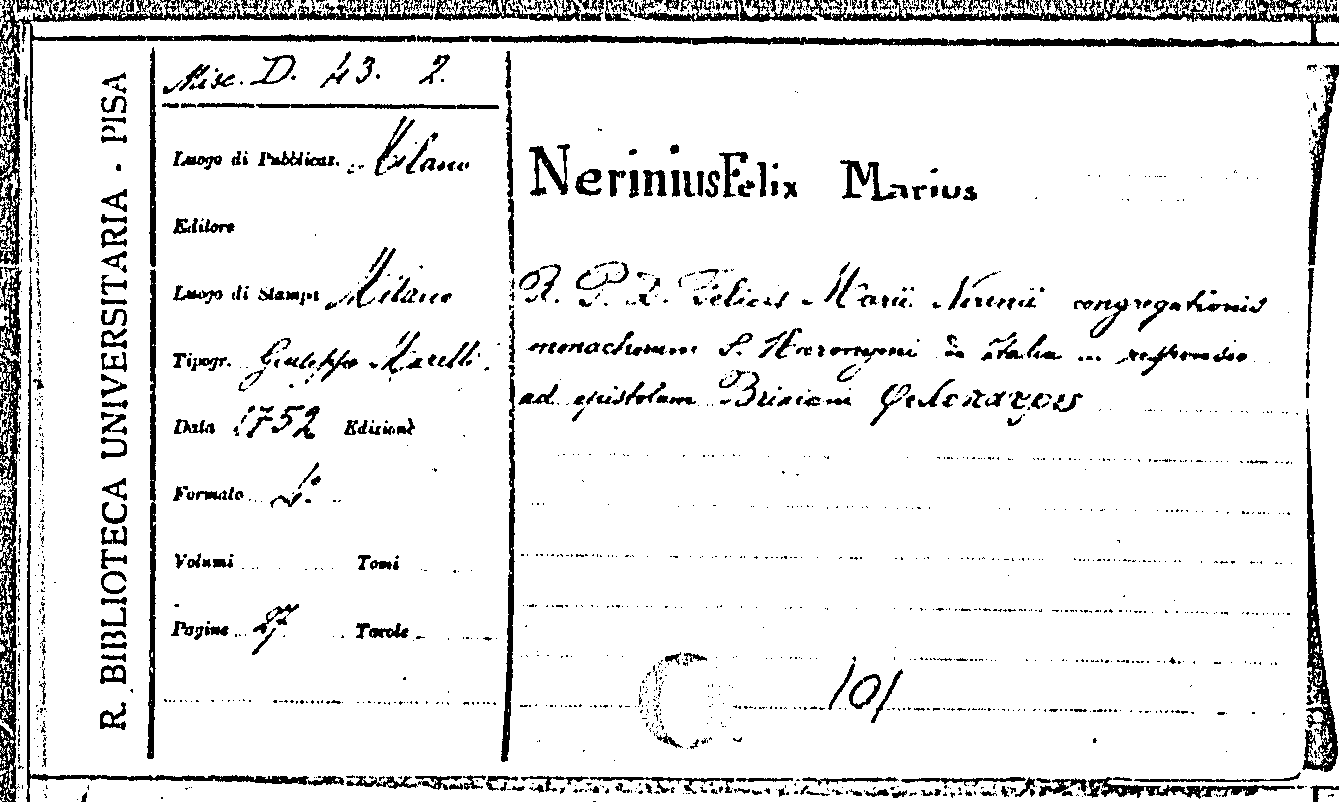 R. BIBLIOTECA UNIVERSITARIA - PISA
Misc. D. 43. 2.
Luogo di Pubblicaz. Milano
Editore
Luogo di Stampa Milano
Tipogr. Giuseppe Marelli
Data 1752 Edizione
Formato 4°
Volumi Tomi
Pagine 27 Tavole
Nerinius Felix Marius
R. P. D. Felicis Marii Nerinii congregationis
monachorum S. Hieronymi de Italia ... responsio
ad epistolam Brixiani
101